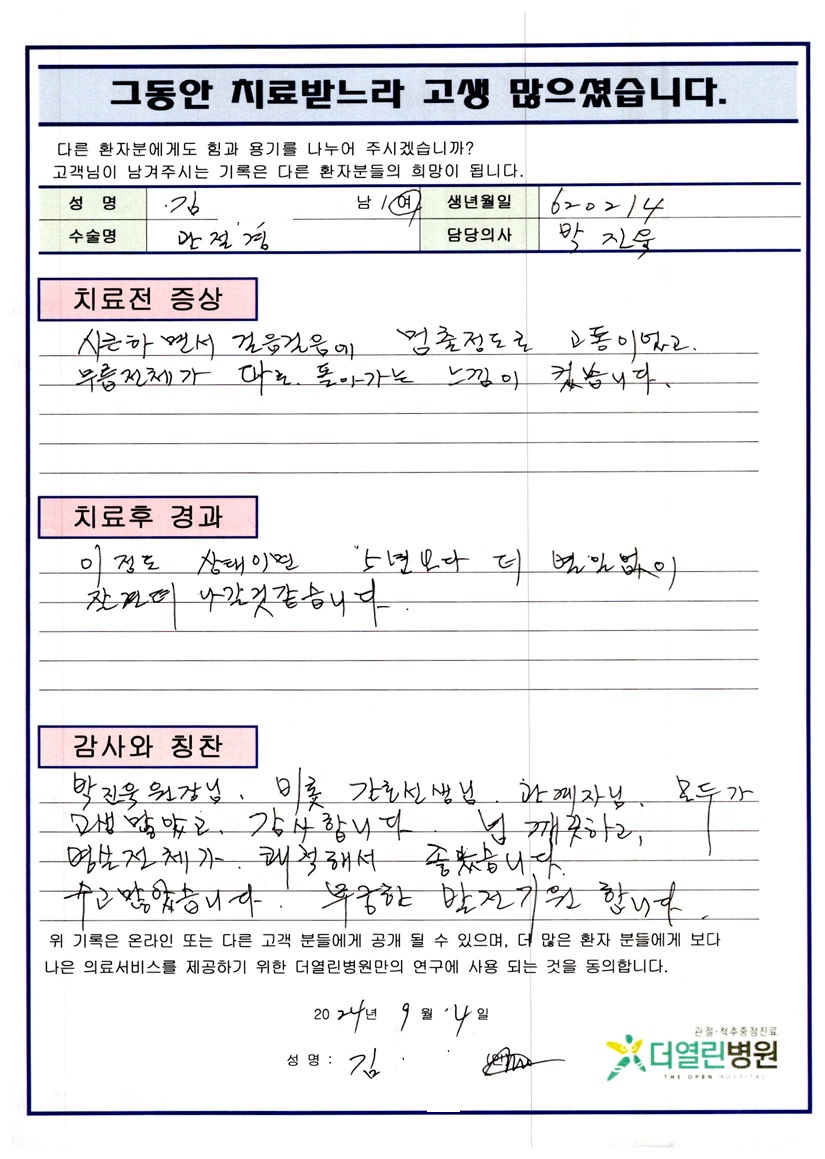 그동안 치료받느라 고생 많으셨습니다.
다른 환자분에게도 힘과 용기를 나누어 주시겠습니까?
고객님이 남겨주시는 기록은 다른 환자분들의 희망이 됩니다.
성 명 김 남 / 여 생년월일 620214
수술명 관절경 담당의사 박진욱
치료전 증상
시큰하면서 걸음걸음에 멈출정도로 고통이었고.
무릎전체가 따로. 돌아가는 느낌이 컸습니다.
치료후 경과
이정도 상태이면 5년보다 더 별일없이
잘 견뎌 나갈것같습니다.
감사와 칭찬
박진욱원장님, 비롯 간호선생님. 관계자님. 모두가
고생많았고. 감사합니다. 넘 깨끗하고,
병실전체가. 쾌적해서 좋았습니다.
수고많았습니다. 무궁한 발전기원 합니다.
위 기록은 온라인 또는 다른 고객 분들에게 공개 될 수 있으며, 더 많은 환자 분들에게 보다
나은 의료서비스를 제공하기 위한 더열린병원만의 연구에 사용 되는 것을 동의합니다.
2024년 9월 4일
성 명 : 김
관절·척추중점진료
더열린병원
THE OPEN HOSPITAL